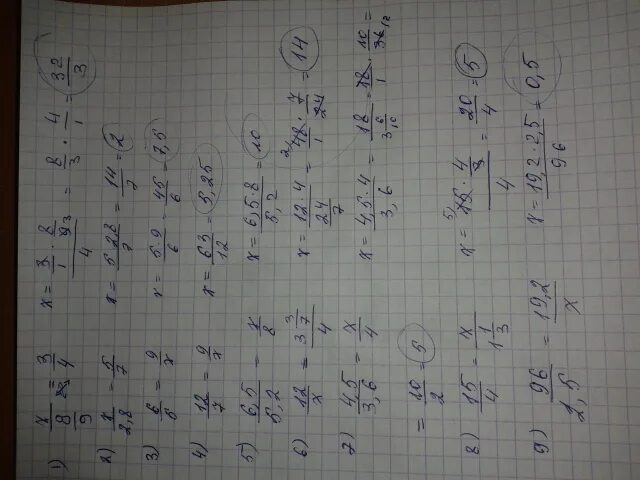 1) x/(8/9) = 3/4 x = (3/1 · 8/9)/4 = 8/3 · 4/1 = 32/3
2) x/2,8 = 5/7 x = 5·2,8/7 = 14/7 = 2
3) 6/5 = 9/x x = 5·9/6 = 45/6 = 7,5
4) 12/7 = 9/x x = 63/12 = 5,25
5) 6,5/5,2 = x/8 x = 6,5·8/5,2 = 10
6) 12/x = 3 3/7/4 x = 12·4/(24/7) = 48/1 · 7/24 = 14
7) 4,5/3,6 = x/4 x = 4,5·4/3,6 = 18/3,6 = 18/1 · 10/36 =
= 10/2 = 5
8) 15/4 = x/(1 1/3) x = (15 · 4/3)/4 = 20/4 = 5
9) 96/2,5 = 19,2/x x = 19,2·2,5/96 = 0,5